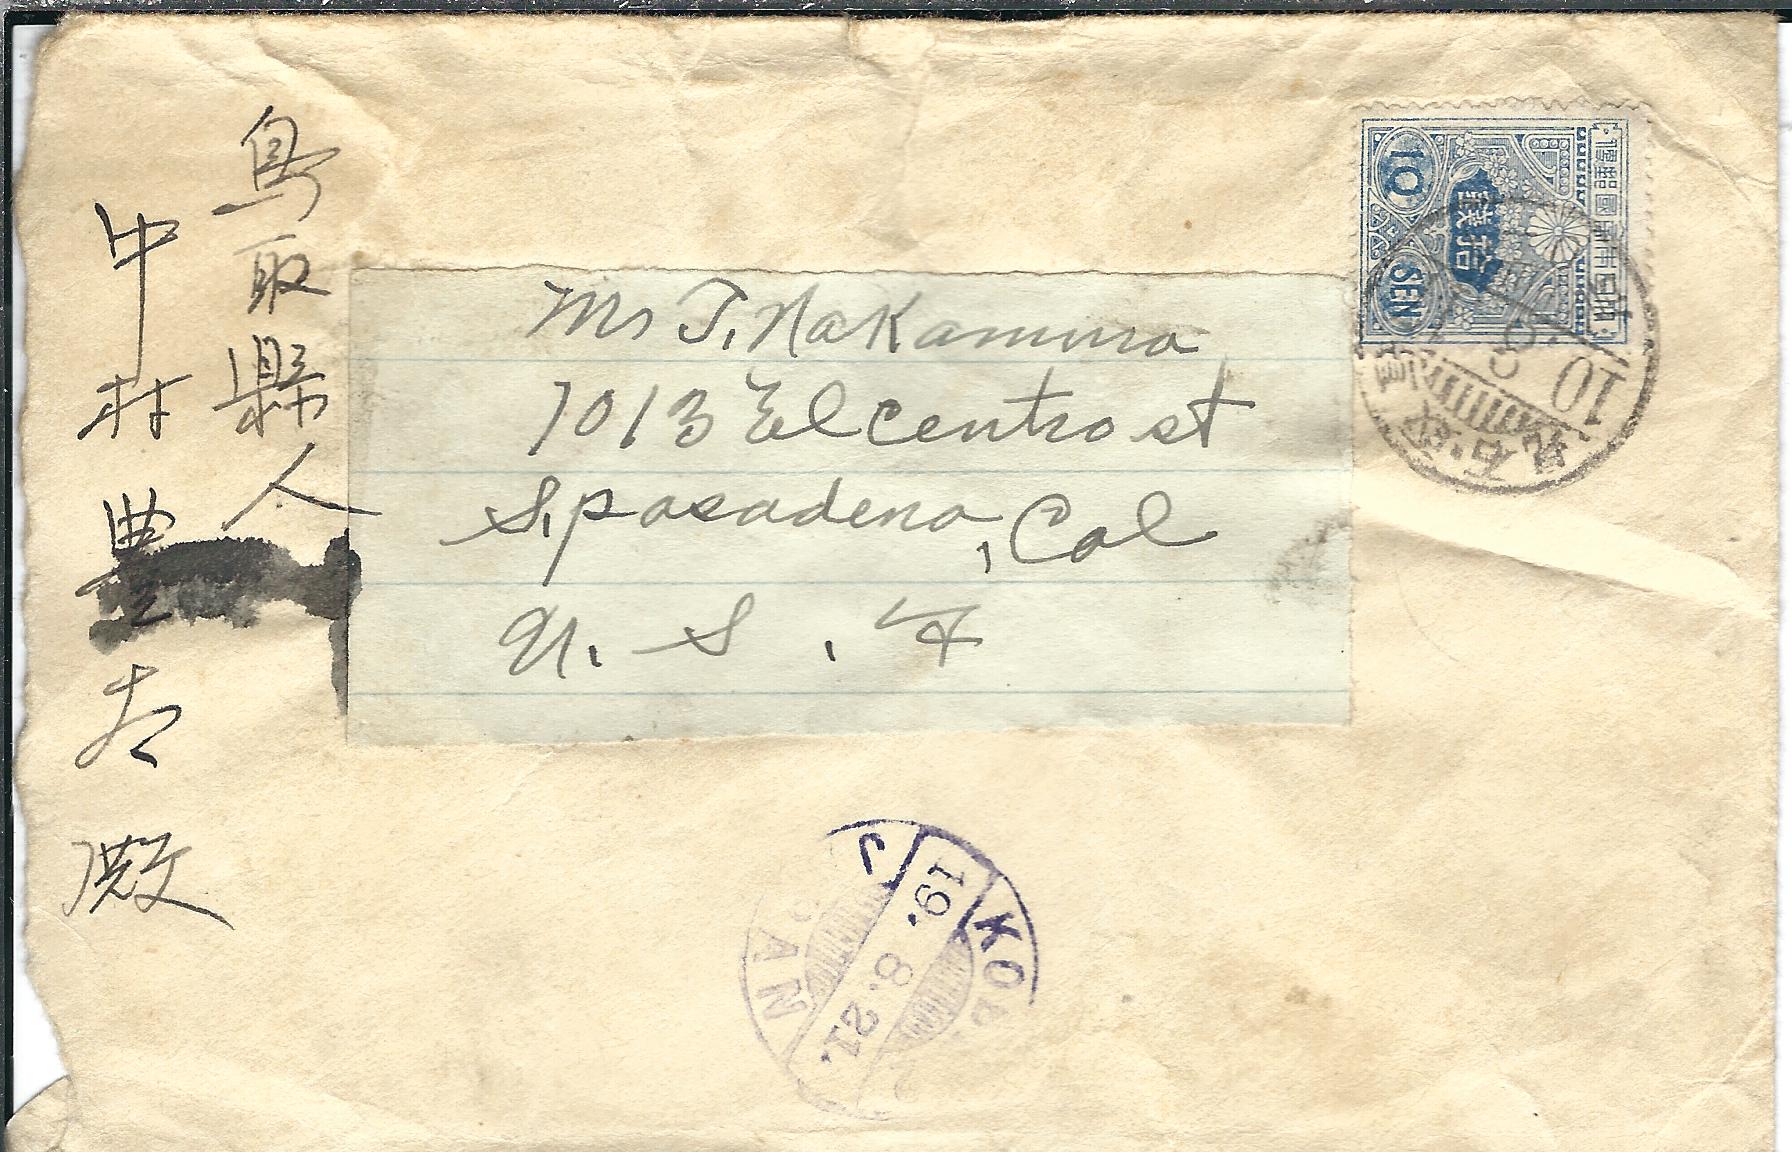 鳥取縣人
中村豊吉殿
Mr T. Nakamura
1013 El centro st
S. pasadena, Cal
U. S. A
10 SEN
拾錢
大日本帝國郵便
10
KOBE
19. 8. 21.
JAPAN